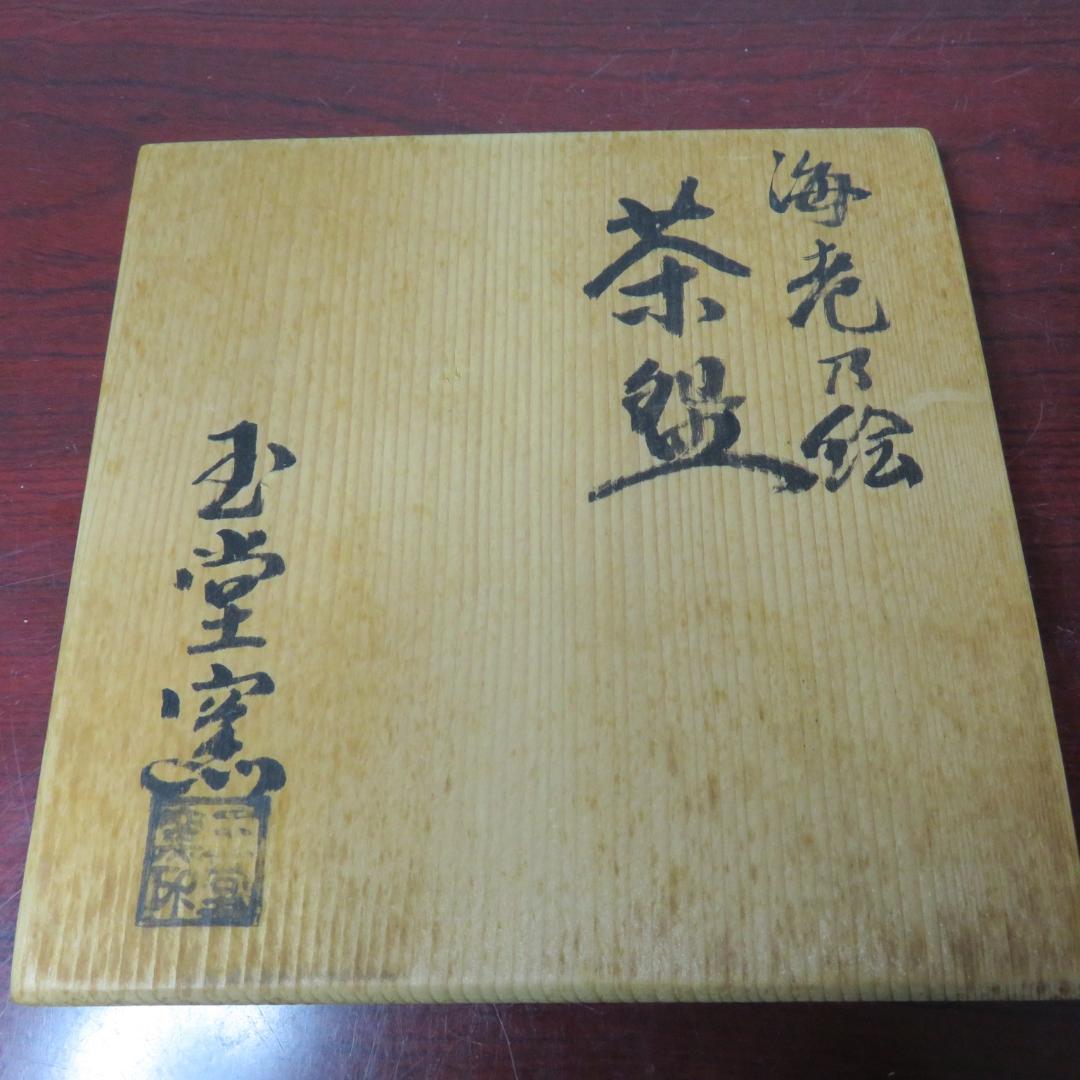 海老乃絵
茶盌
玉堂窯